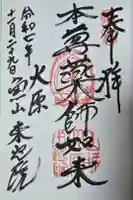 奉拝
本尊薬師如来
大原
魚山 来迎院
令和七年
十一月二十九日